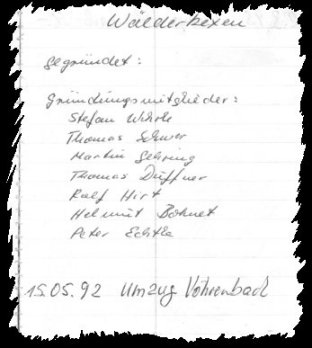 Wälderhexen
gegründet:
Gründungsmitglieder:
Stefan Wihrle
Thomas Schwer
Martin Gehring
Thomas Duffner
Ralf Hirt
Helmut Bohnet
Peter Echtle
15.05.92 Umzug Vöhrenbach